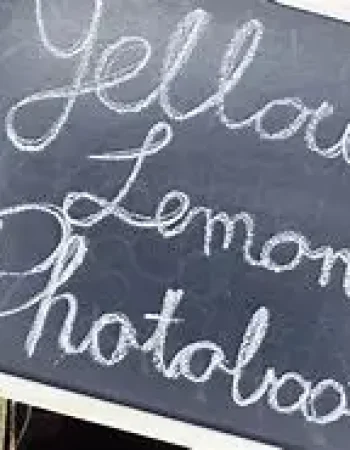 Yello
Lemon
Photoboo